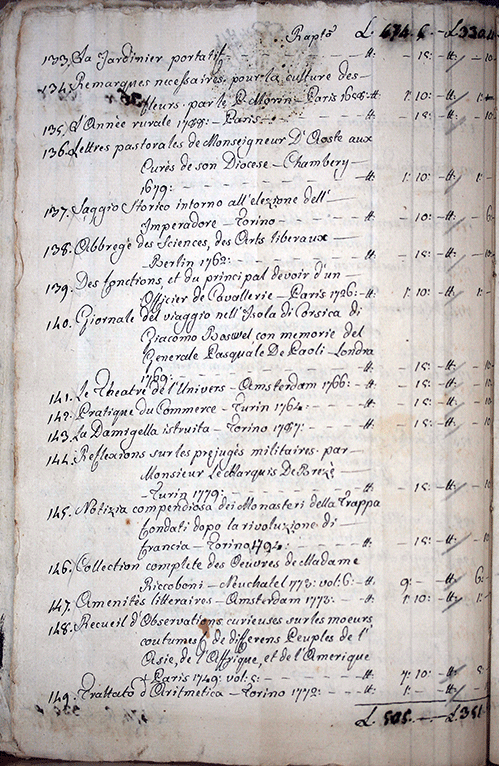 Rapto £ 474. 5. — £ 330.
133. La Jardinier portatif — — — — — — #: — 15: — #: — 10
134. Remarques necessaires pour la culture des
fleurs par le P. Morin — Paris 1658: #: 1: 10: — #: 1:
135. L'Année rurale 1788: — Paris — — — #: — 15: — #: — 10
136. Lettres pastorales de Monseigneur D'Aoste aux
Curés de son Diocese — Chambery —
1679: — — — — — #: 1: 10: — #: 1:
137. Saggio Storico intorno all'elezione dell'
Imperadore — Torino — — — #: — 10: — #: — 6
138. Abbregé des Sciences, des Arts liberaux —
Berlin 1762: — — — — #: — 15: — #: — 10
139. Des fonctions, et du principal devoir d'un —
Officier de Cavallerie — Paris 1726: — #: 1: 10: — #: 1:
140. Giornale del viaggio nell'Isola di Corsica di
Giacomo Boswel con memorie del
Generale Pasquale De Paoli — Londra
1769: — — — — #: — 15: — #: — 10
141. Le Theatre de l'Univers — Amsterdam 1766: — #: — 15: — #: — 10
142. Pratique du Commerce — Turin 1764: — #: — 15: — #: — 10
143. La Damigella istruita — Torino 1787: — #: — 15: — #: — 10
144. Reflexions sur les prejugés militaires par —
Monsieur Le Marquis De Brezè —
— Turin 1779: — — — — #: — 15: — #: — 10
145. Notizia compendiosa dei Monasteri della Trappa
fondati dopo la rivoluzione di
Francia — Torino 1794: — — #: — 15: — #: — 10
146. Collection complete des Oeuvres de Madame
Riccoboni — Neuchatel 1773: vol: 6: — #: 9: — — #: 6:
147. Amenités litteraires — Amsterdam 1773: — — #: 1: 10: — #: 1:
148. Recueil d'Observations curieuses sur les moeurs
coutumes &. de differens Peuples de l'
Asie, de l'Affrique, et de l'Amerique
Paris 1749: vol: 5: — — — #: 7: 10: — #: 5
149. Trattato d'Aritmetica — Torino 1772: — — #: 1: — — #:
£. 505. — — £ 351